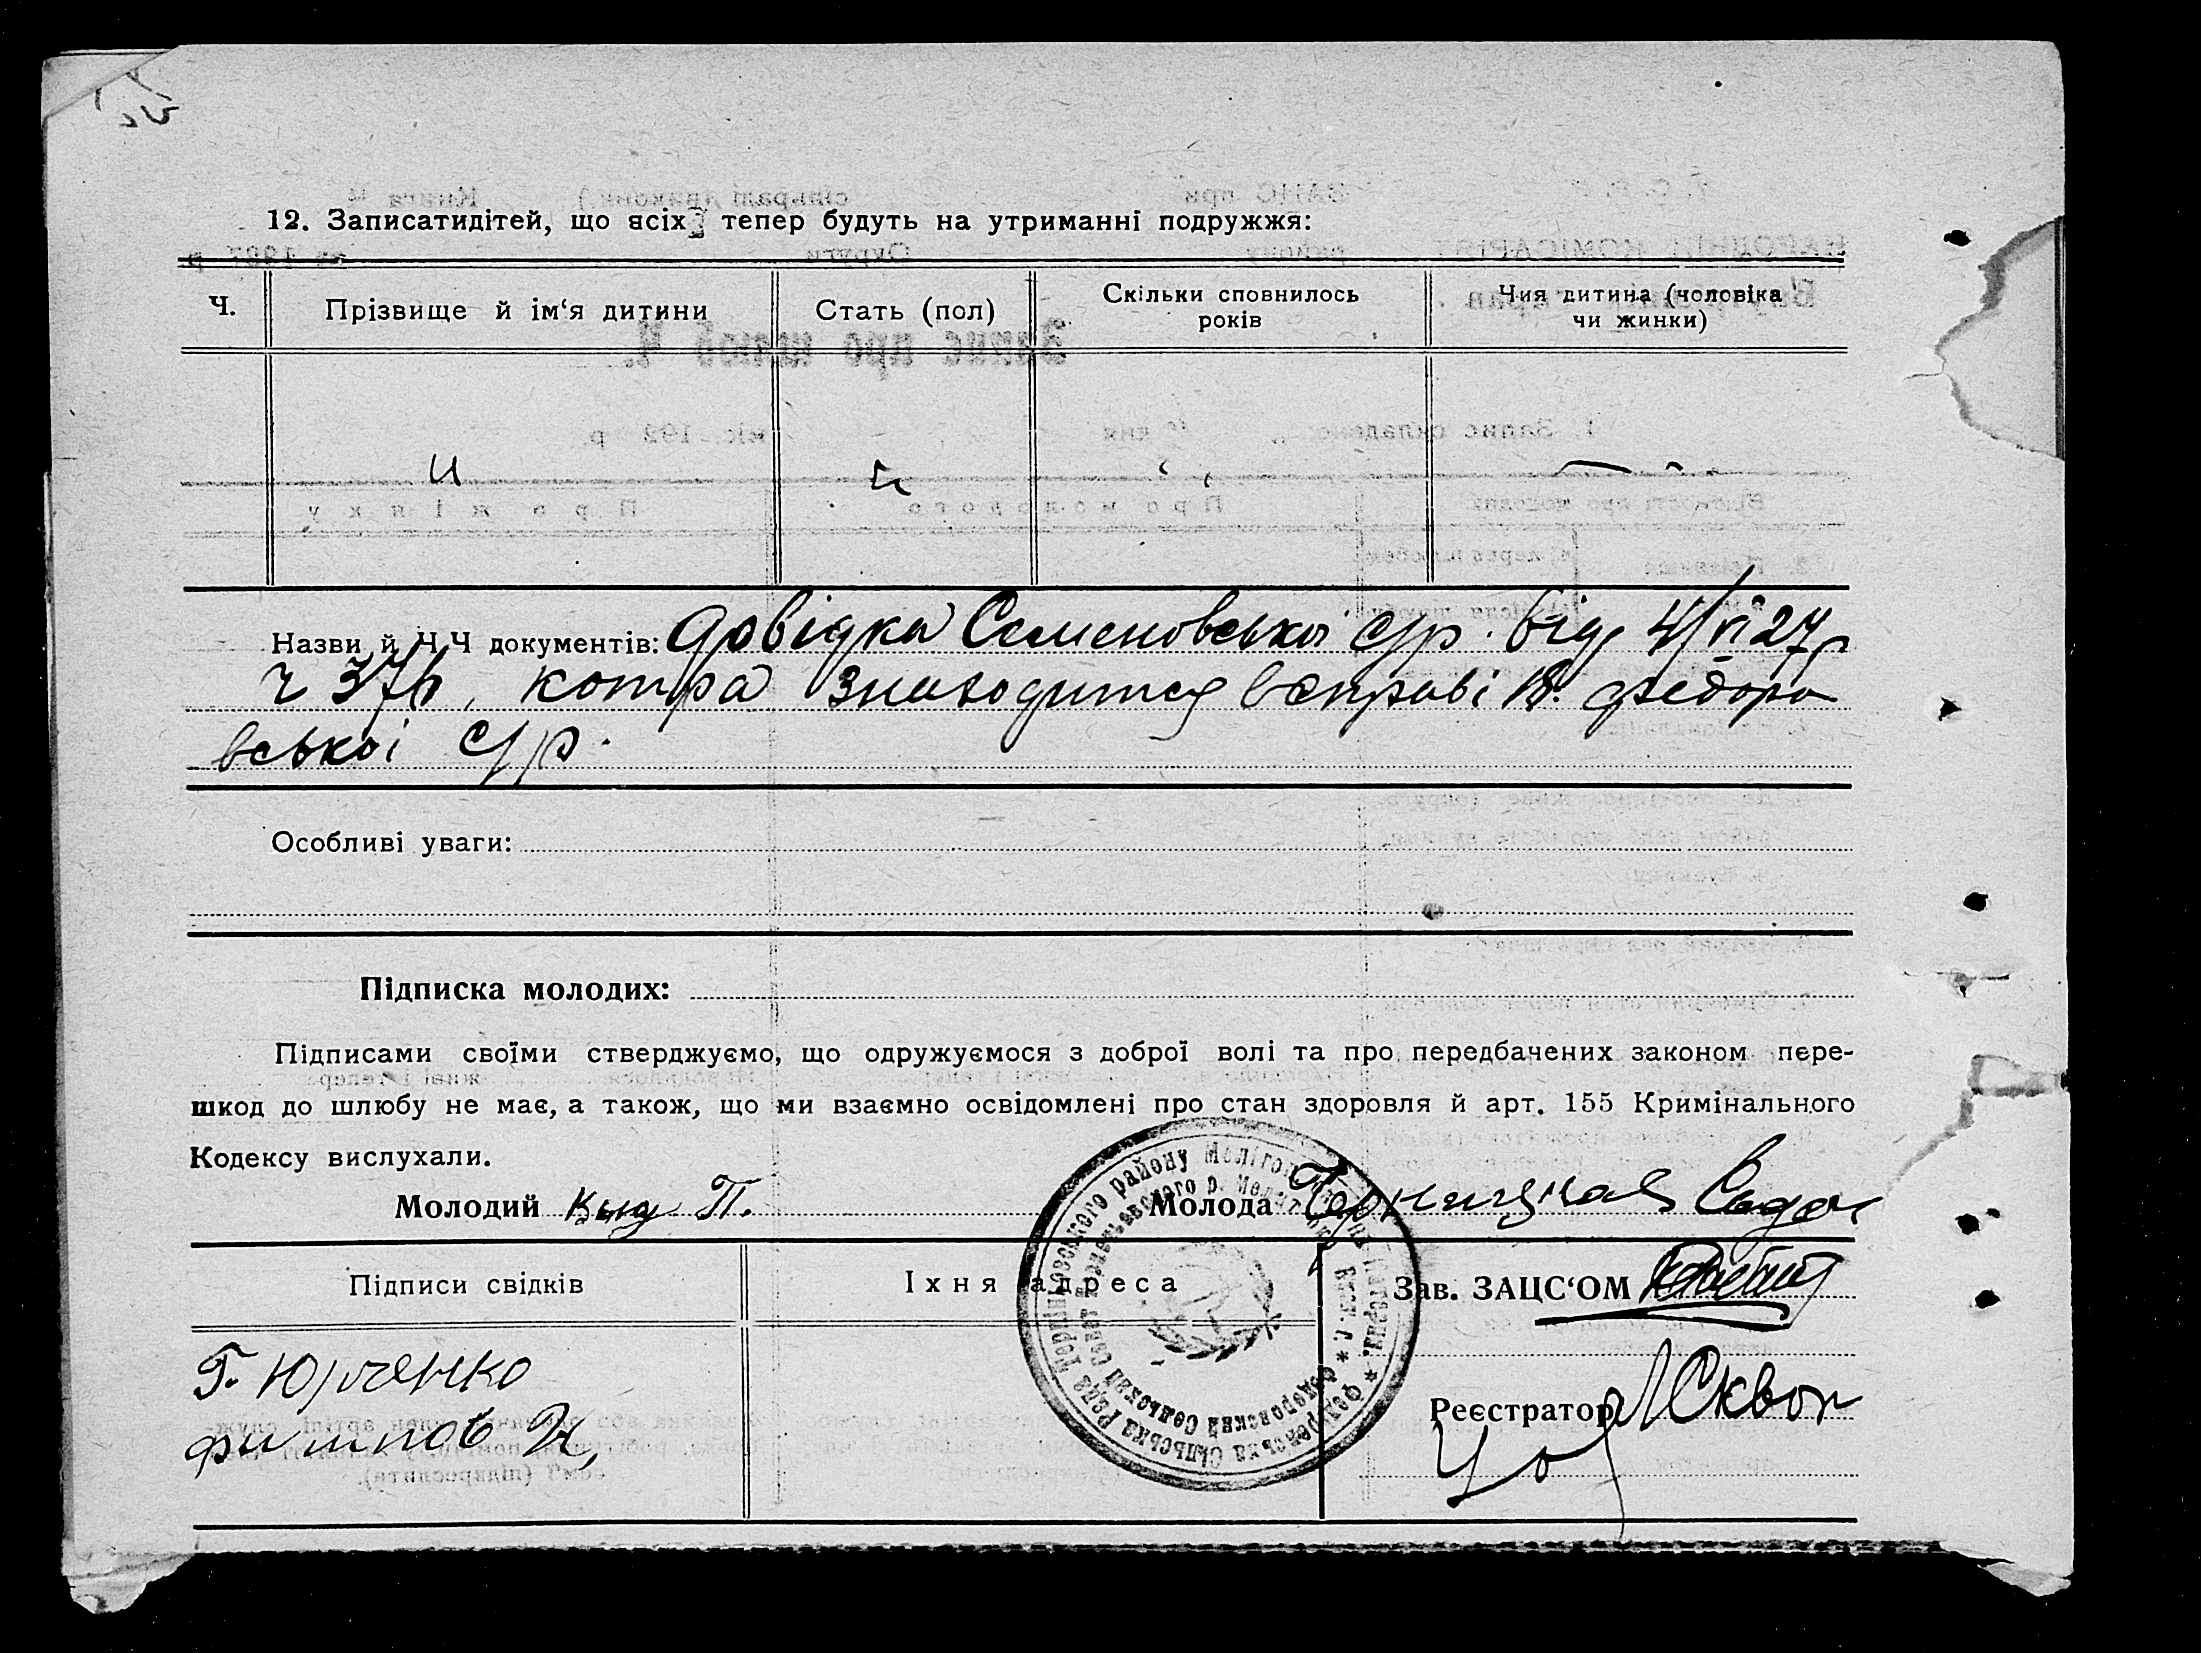 12. Записатидітей, що всіх тепер будуть на утриманні подружжя:
Ч. Прізвище й ім‘я дитини Стать (пол) Скільки сповнилось років Чия дитина (чоловіка чи жинки)
Назви й Ч Ч документів: Довідка Семеновської с/р. від 4/VI 27 р
ч 376, котра знаходится в справі 18. Федоро
вської с/р.
Особливі уваги:
Підписка молодих:
Підписами своїми стверджуємо, що одружуємося з доброї волі та про передбачених законом пере-
шкод до шлюбу не має, а також, що ми взаємно освідомлені про стан здоровля й арт. 155 Кримінального
Кодексу вислухали.
Молодий П. Молода
Підписи свідків Їхня адреса Зав. ЗАЦС‘ОМ
Г. Юрченко
Реєстратор
Федорівська Сільська Рада Терпіннівського району
Федоровский Сельский Совет